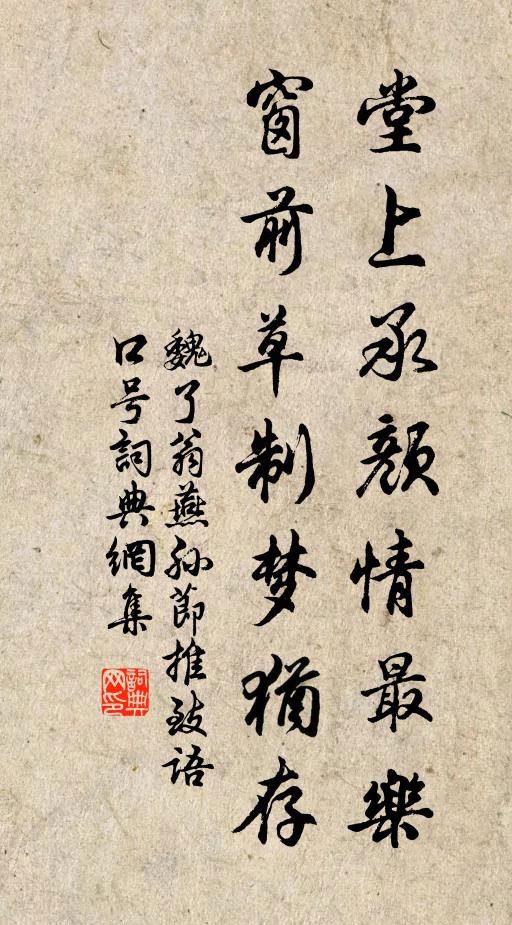 堂上承顔情最樂
窗前草制梦猶存
魏了翁燕孙節推致语
口号詞典網集
詞典网印